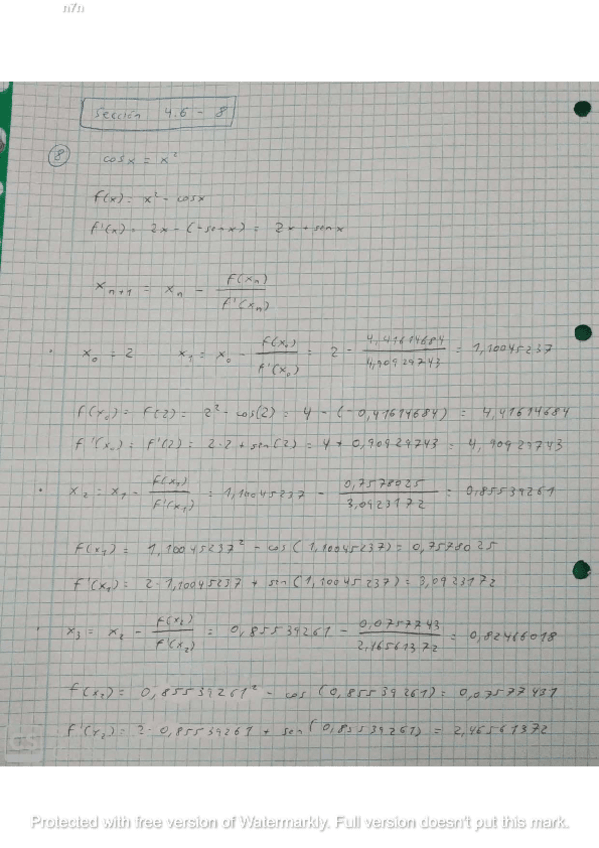 n7n
Sección 4.6 - 8
⑧ cos x = x²
f(x) = x² - cos x
f'(x) = 2x - (-sen x) = 2x + sen x
x_{n+1} = x_n - f(x_n) / f'(x_n)
· x_0 = 2 x_1 = x_0 - f(x_0) / f'(x_0) = 2 - 4,41614684 / 4,90929743 = 1,10045237
f(x_0) = f(2) = 2² - cos(2) = 4 - (-0,41614684) = 4,41614684
f'(x_0) = f'(2) = 2·2 + sen(2) = 4 + 0,90929743 = 4,90929743
· x_2 = x_1 - f(x_1) / f'(x_1) = 1,10045237 - 0,7578025 / 3,0923172 = 0,85539261
f(x_1) = 1,10045237² - cos(1,10045237) = 0,7578025
f'(x_1) = 2·1,10045237 + sin(1,10045237) = 3,0923172
· x_3 = x_2 - f(x_2) / f'(x_2) = 0,85539261 - / = 0,82466018
f(x_2) = 0,85539261² - cos(0,85539261) =
f'(x_2) = 2·0,85539261 + sen(0,85539261) = 2,46561372
Protected with free version of Watermarkly. Full version doesn't put this mark.